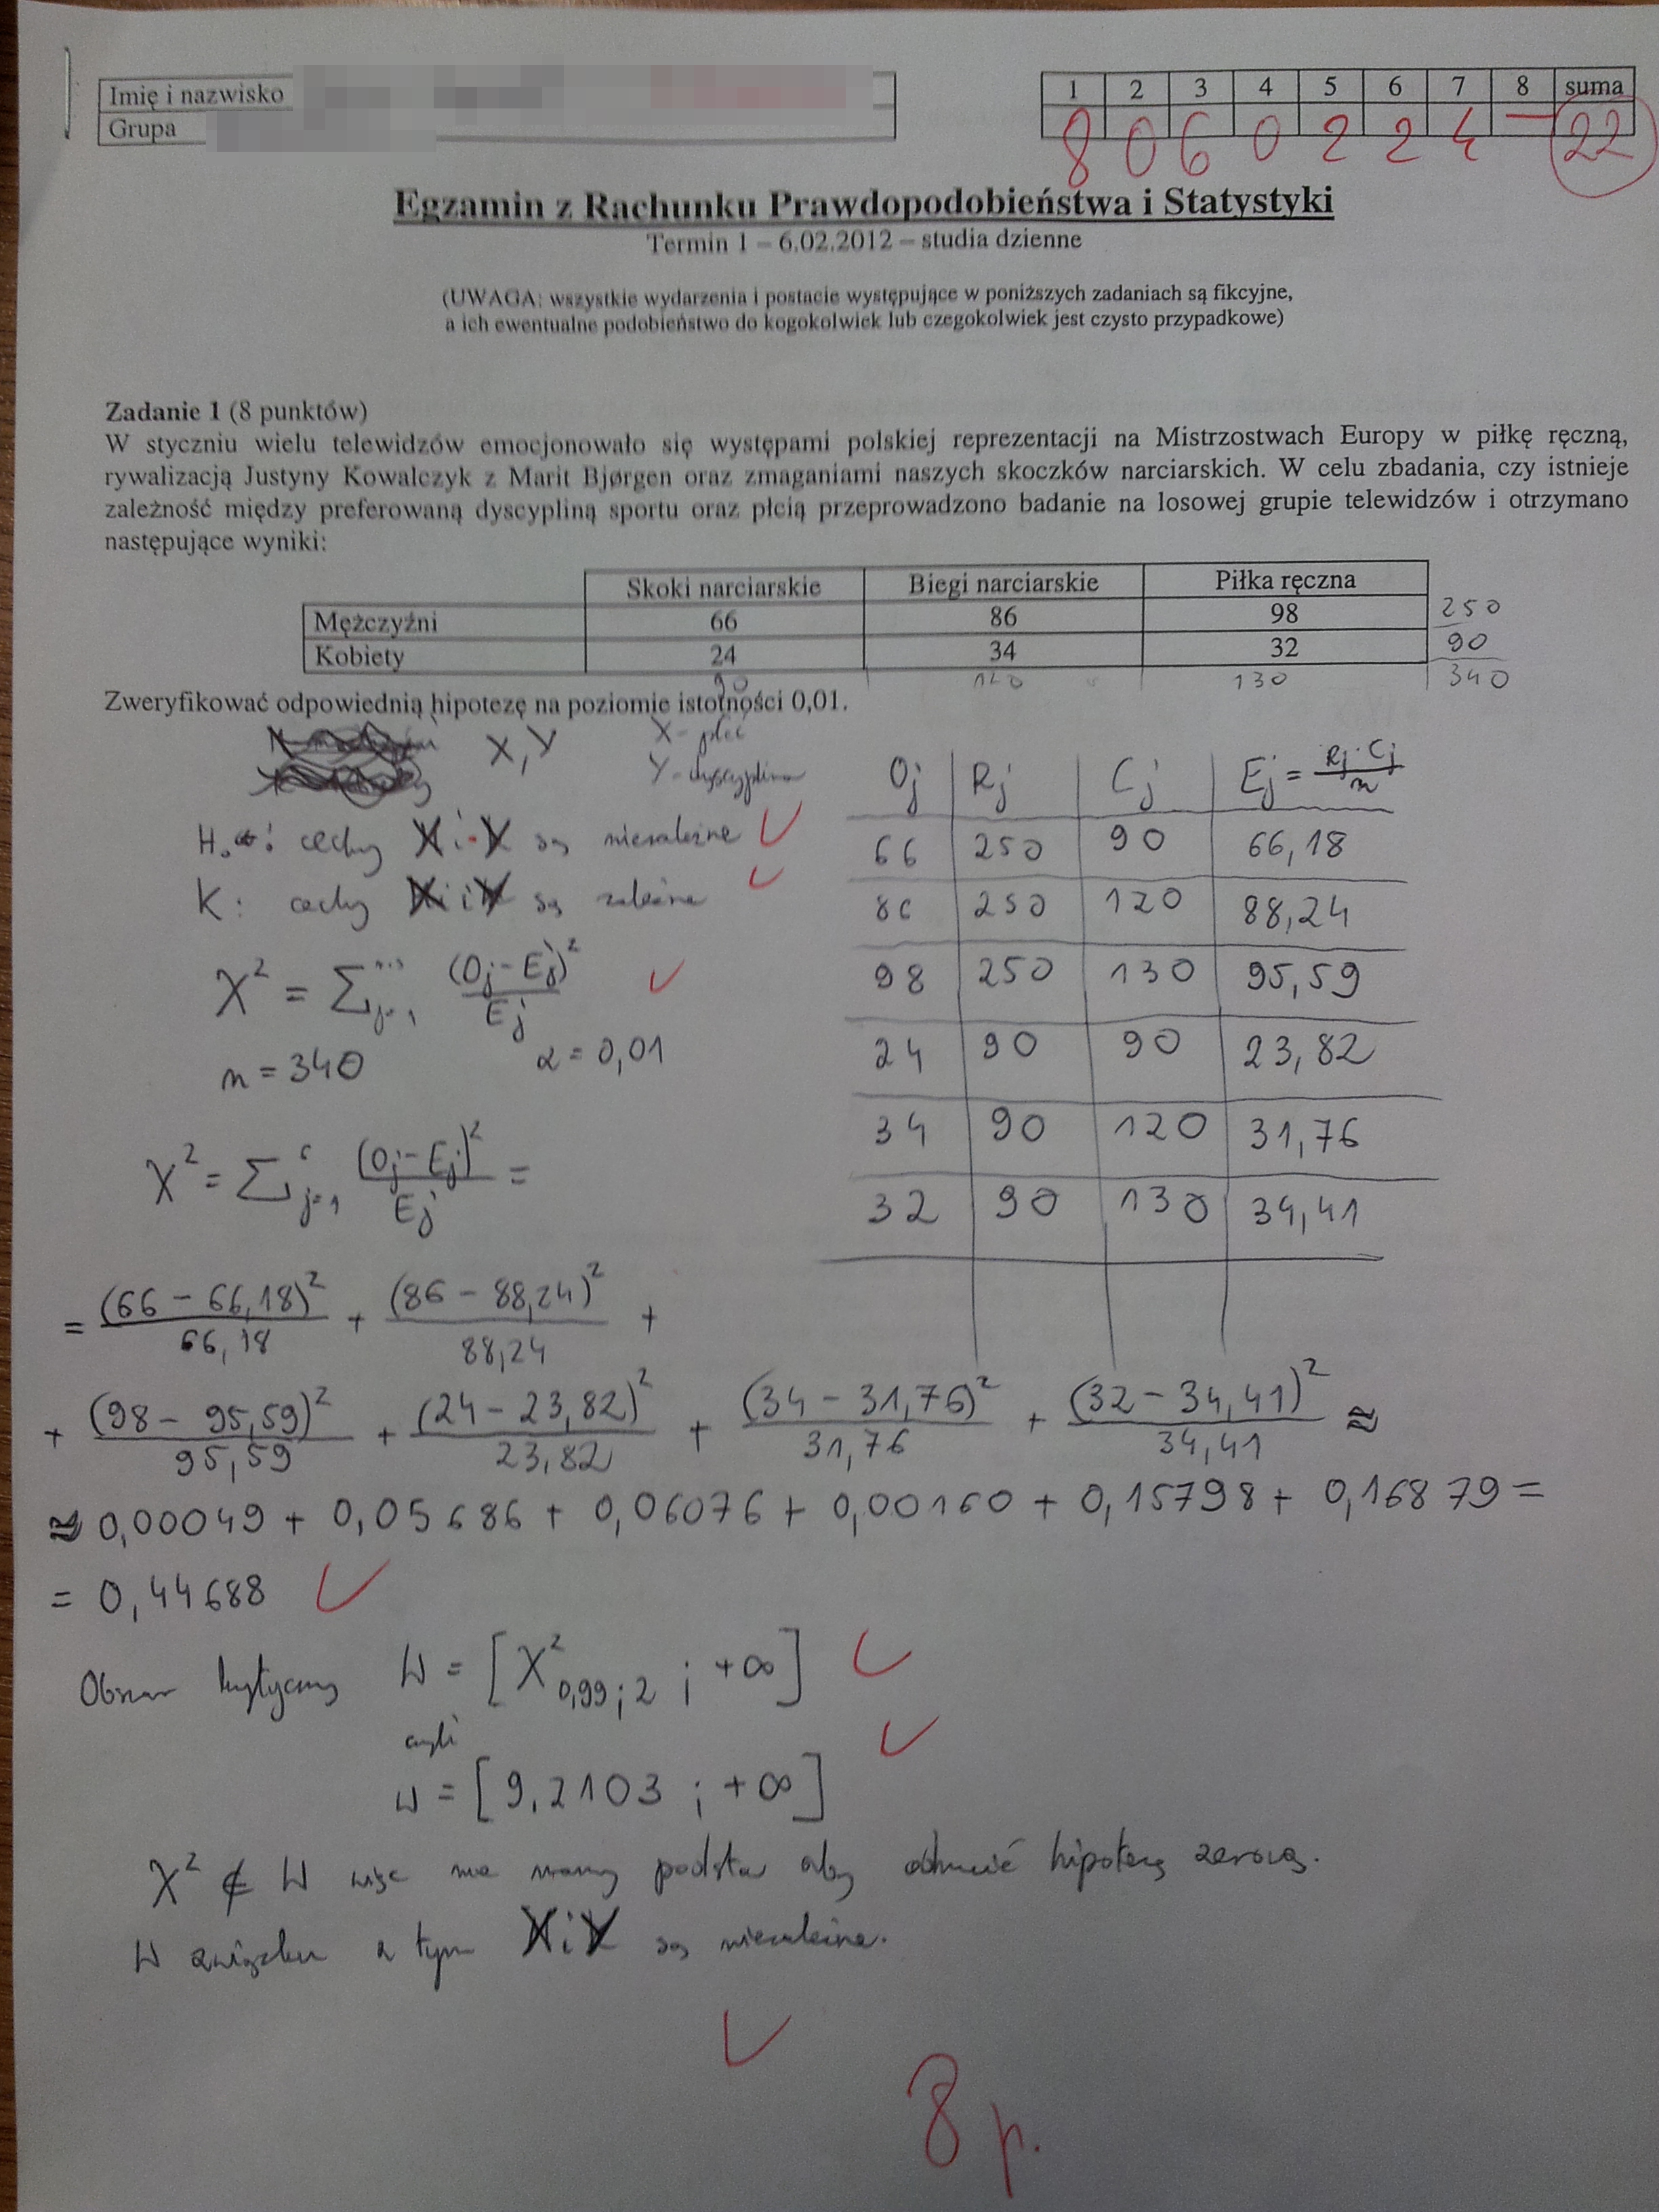 Imię i nazwisko
Grupa
1 2 3 4 5 6 7 8 suma
8 0 6 0 2 2 4 — 22
Egzamin z Rachunku Prawdopodobieństwa i Statystyki
Termin 1 – 6.02.2012 – studia dzienne
(UWAGA: wszystkie wydarzenia i postacie występujące w poniższych zadaniach są fikcyjne,
a ich ewentualne podobieństwo do kogokolwiek lub czegokolwiek jest czysto przypadkowe)
Zadanie 1 (8 punktów)
W styczniu wielu telewidzów emocjonowało się występami polskiej reprezentacji na Mistrzostwach Europy w piłkę ręczną,
rywalizacją Justyny Kowalczyk z Marit Bjørgen oraz zmaganiami naszych skoczków narciarskich. W celu zbadania, czy istnieje
zależność między preferowaną dyscypliną sportu oraz płcią przeprowadzono badanie na losowej grupie telewidzów i otrzymano
następujące wyniki:
Skoki narciarskie Biegi narciarskie Piłka ręczna
Mężczyźni 66 86 98 250
Kobiety 24 34 32 90
90 120 130 340
Zweryfikować odpowiednią hipotezę na poziomie istotności 0,01.
X, Y
X - płeć
Y - dyscyplina
H₀: cechy X i Y są niezależne
K: cechy X i Y są zależne
χ² = Σ (Oj - Ej)² / Ej
n = 340 α = 0,01
Oj Rj Cj Ej = Rj · Cj / n
66 250 90 66,18
86 250 120 88,24
98 250 130 95,59
24 90 90 23,82
34 90 120 31,76
32 90 130 34,41
χ² = Σ⁶ j=1 (Oj - Ej)² / Ej =
= (66 - 66,18)² / 66,18 + (86 - 88,24)² / 88,24 +
+ (98 - 95,59)² / 95,59 + (24 - 23,82)² / 23,82 + (34 - 31,76)² / 31,76 + (32 - 34,41)² / 34,41 ≈
≈ 0,00049 + 0,05686 + 0,06076 + 0,00160 + 0,15798 + 0,16879 =
= 0,44688
Obszar krytyczny W = [χ²0,99;2 ; +∞]
czyli
W = [9,2103 ; +∞]
χ² ∉ W więc nie mamy podstaw aby odrzucić hipotezę zerową.
W związku z tym X i Y są niezależne.
8 p.